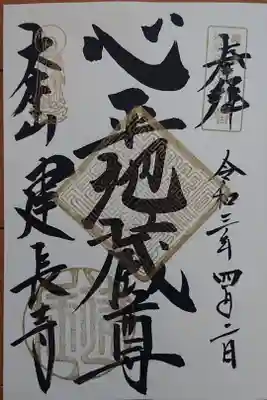 奉拝
令和三年四月二日
心平地蔵尊
大倉山
建長寺